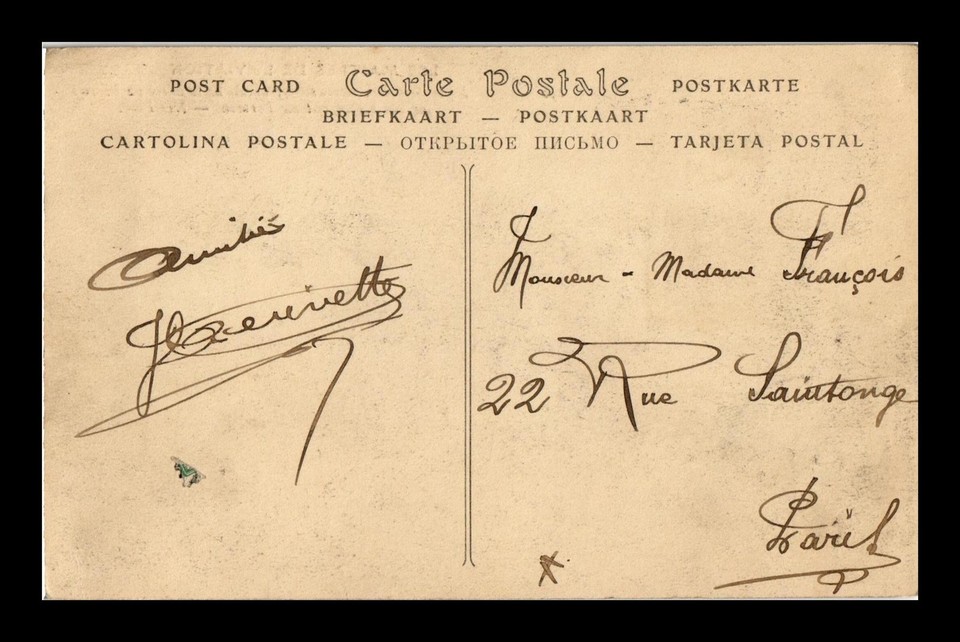 POST CARD Carte Postale POSTKARTE
BRIEFKAART — POSTKAART
CARTOLINA POSTALE — ОТКРЫТОЕ ПИСЬМО — TARJETA POSTAL
Amitiés
Henriette
Monsieur - Madame François
22 Rue Saintonge
Paris